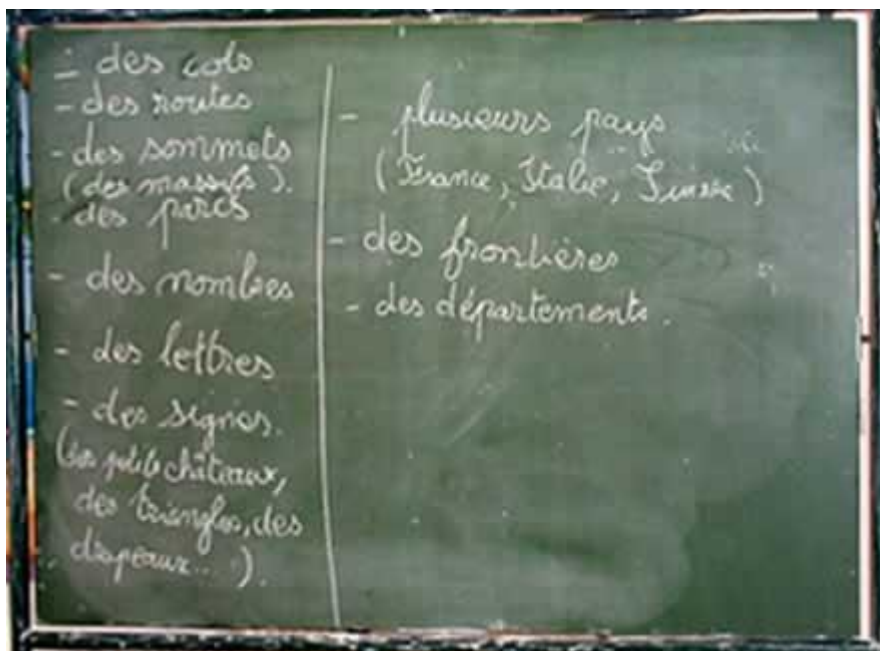 - des cols
- des routes
- des sommets
(des massifs).
- des parcs
- des nombres
- des lettres
- des signes.
(des petits châteaux,
des triangles, des
drapeaux...).
- plusieurs pays
(France, Italie, Suisse)
- des frontières
- des départements.